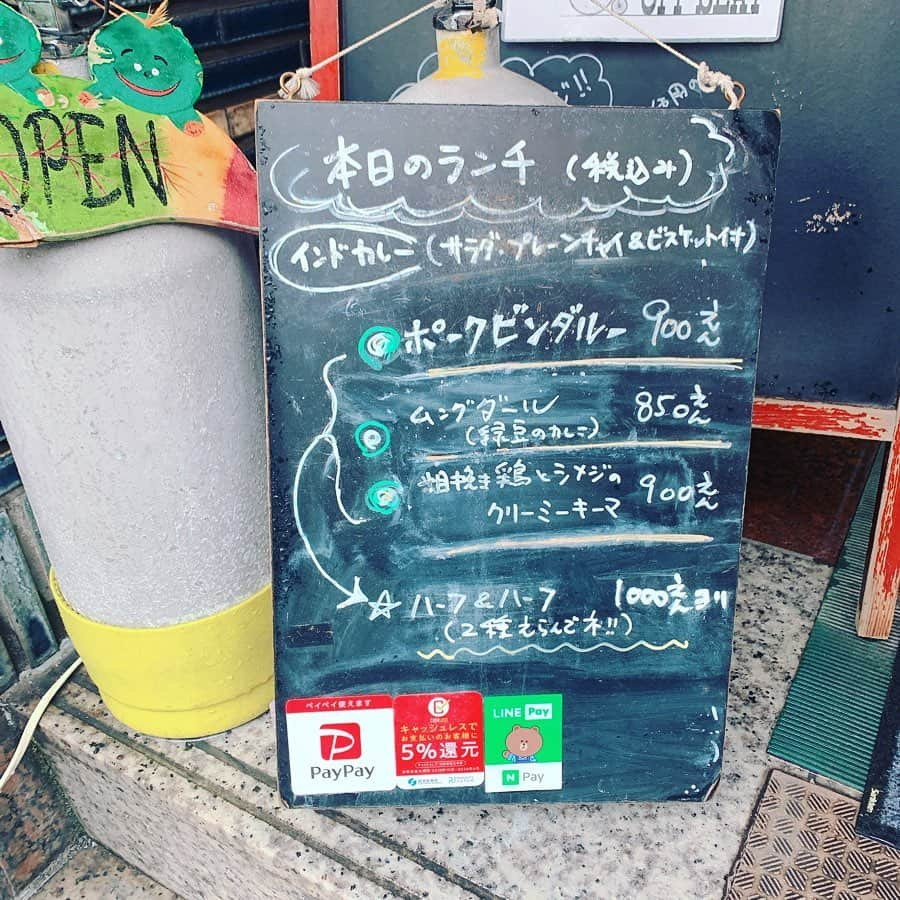 OPEN
本日のランチ (税込み)
インドカレー (サラダ・プレーンチャイ&ビスケット付)
ポークビンダルー 900えん
ムングダール 850えん
(緑豆のカレー)
粗挽き鶏とシメジの 900えん
クリーミーキーマ
☆ ハーフ&ハーフ 1000えんヨリ
(2種えらんでネ!!)
ペイペイ使えます
PayPay
キャッシュレスで
お支払いのお客様に
5%還元
LINE Pay
N Pay